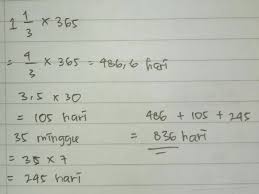 1 1/3 × 365
= 4/3 × 365 = 486,6 hari
3,5 × 30
= 105 hari
35 minggu
= 35 × 7
= 245 hari
486 + 105 + 245
= 836 hari